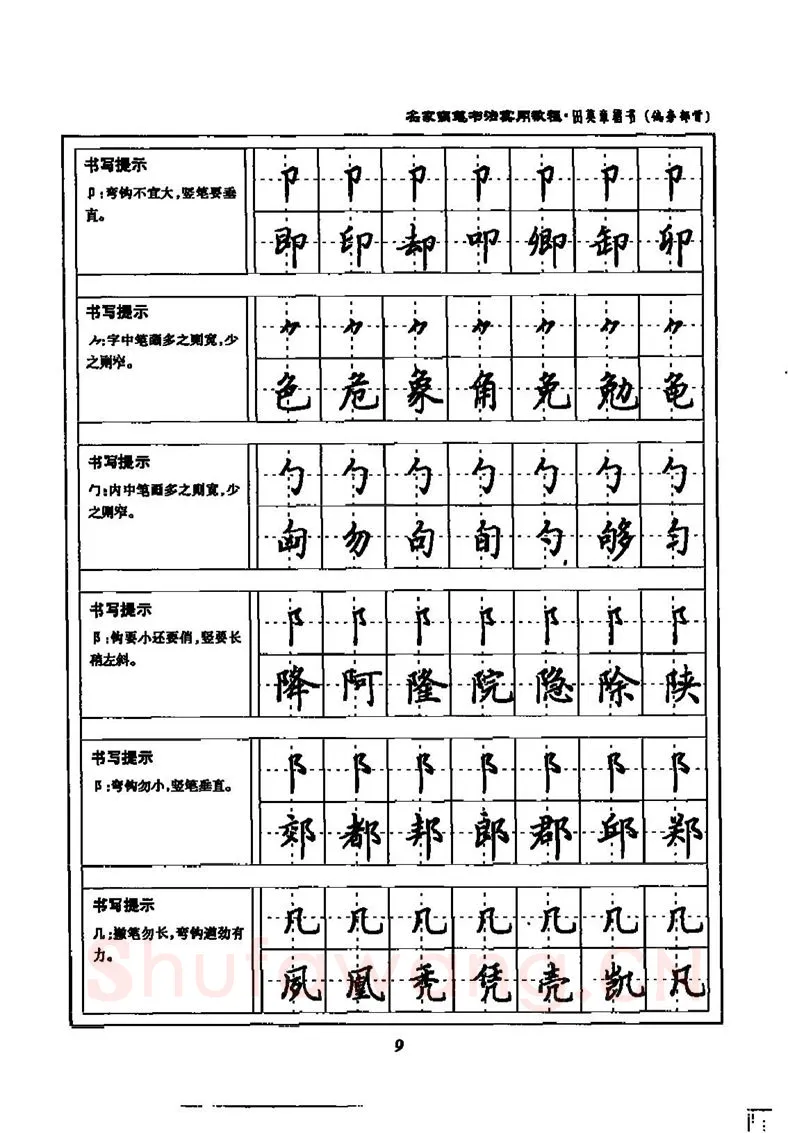 名家硬笔书法实用教程·田英章楷书(偏旁部首)
书写提示
卩:弯钩不宜大,竖笔要垂
直。
卩卩卩卩卩卩卩
即印却叩卿卸卯
书写提示
⺈:字中笔画多之则宽,少
之则窄。
⺈⺈⺈⺈⺈⺈⺈
色危象角免勉龟
书写提示
勹:内中笔画多之则宽,少
之则窄。
勹勹勹勹勹勹勹
匈勿句旬勺够匀
书写提示
阝:钩要小还要俏,竖要长
稍左斜。
阝阝阝阝阝阝阝
降阿隆院隐除陕
书写提示
阝:弯钩勿小,竖笔垂直。
阝阝阝阝阝阝阝
郊都邦郎郡邱郑
书写提示
几:撇笔勿长,弯钩遒劲有
力。
凡凡凡凡凡凡凡
夙凰秃凭壳凯凡
Shufawang.CN
9